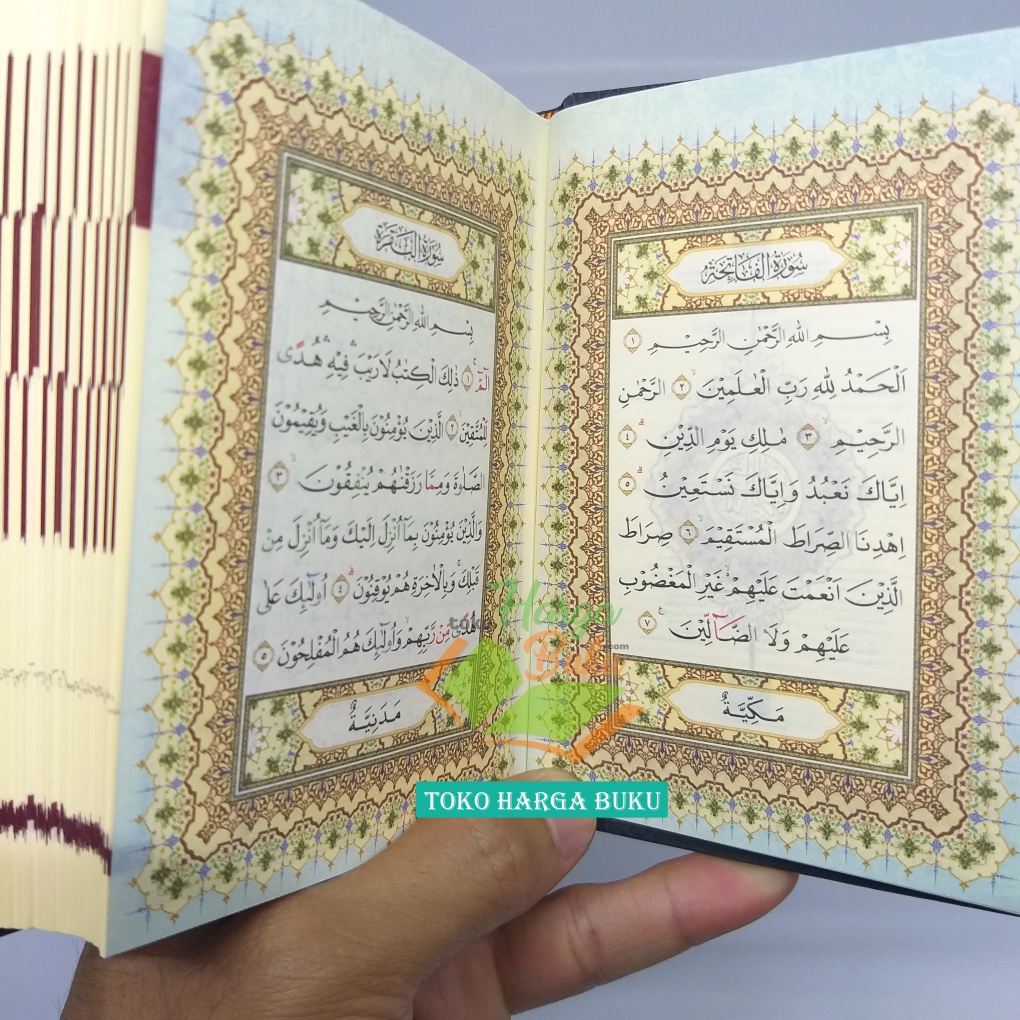 سُورَةُ الْفَاتِحَةِ
بِسْمِ اللّٰهِ الرَّحْمٰنِ الرَّحِيْمِ ١
اَلْحَمْدُ لِلّٰهِ رَبِّ الْعٰلَمِيْنَ ٢ الرَّحْمٰنِ
الرَّحِيْمِ ٣ مٰلِكِ يَوْمِ الدِّيْنِ ٤
اِيَّاكَ نَعْبُدُ وَاِيَّاكَ نَسْتَعِيْنُ ٥
اِهْدِنَا الصِّرَاطَ الْمُسْتَقِيْمَ ٦ صِرَاطَ
الَّذِيْنَ اَنْعَمْتَ عَلَيْهِمْ غَيْرِ الْمَغْضُوْبِ
عَلَيْهِمْ وَلَا الضَّآلِّيْنَ ٧
مَكِّيَّةٌ
سُورَةُ الْبَقَرَةِ
بِسْمِ اللّٰهِ الرَّحْمٰنِ الرَّحِيْمِ
الٓمّٓ ١ ذٰلِكَ الْكِتٰبُ لَا رَيْبَ فِيْهِ هُدًى
لِّلْمُتَّقِيْنَ ٢ الَّذِيْنَ يُؤْمِنُوْنَ بِالْغَيْبِ وَيُقِيْمُوْنَ
الصَّلٰوةَ وَمِمَّا رَزَقْنٰهُمْ يُنْفِقُوْنَ ٣
وَالَّذِيْنَ يُؤْمِنُوْنَ بِمَآ اُنْزِلَ اِلَيْكَ وَمَآ اُنْزِلَ مِنْ
قَبْلِكَ وَبِالْاٰخِرَةِ هُمْ يُوْقِنُوْنَ ٤ اُولٰٓئِكَ عَلٰى
هُدًى مِّنْ رَّبِّهِمْ وَاُولٰٓئِكَ هُمُ الْمُفْلِحُوْنَ ٥
مَدَنِيَّةٌ
toko Harga Buku .com
TOKO HARGA BUKU